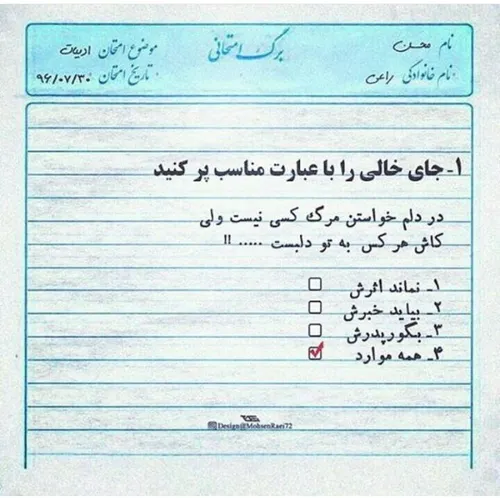 برگ امتحانی
نام محسن
نام خانوادگی راعی
موضوع امتحان ادبیات
تاریخ امتحان ۹۶/۰۷/۳۰
۱- جای خالی را با عبارت مناسب پر کنید
در دلم خواستن مرگ کسی نیست ولی
کاش هر کس به تو دلبست ..... !!
۱- نماند اثرش
۲- بیاید خبرش
۳- بگورپدرش
۴- همه موارد
Design@MohsenRaei72